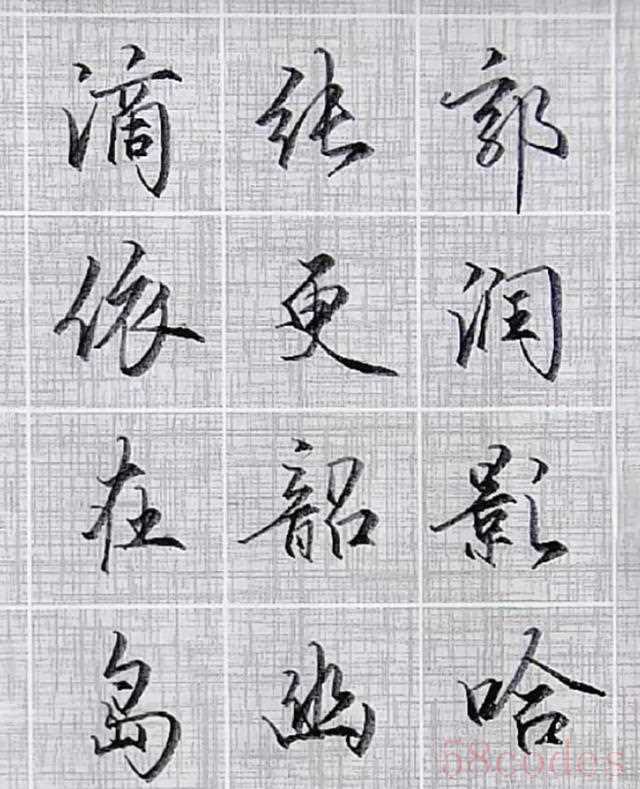 滴张郭
依更润
在韶影
岛幽哈
58codes